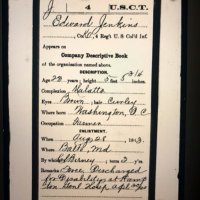 J | 4 | U.S.C.T.
Edward Jenkins
Co. H, 4 Reg't U.S. Col'd Inf.
Appears on
Company Descriptive Book
of the organization named above.
DESCRIPTION.
Age 22 years; height 5 feet 5 3/4
Complexion Mulatto
Eyes Brown; hair Curley
Where born Washington, D.C.
Occupation
ENLISTMENT.
When Aug 28, 1863.
Where Balto, Md
By Birney; term 3 y'rs.
Remarks: Discharged
for Disability at Hamp
ton Genl Hosp